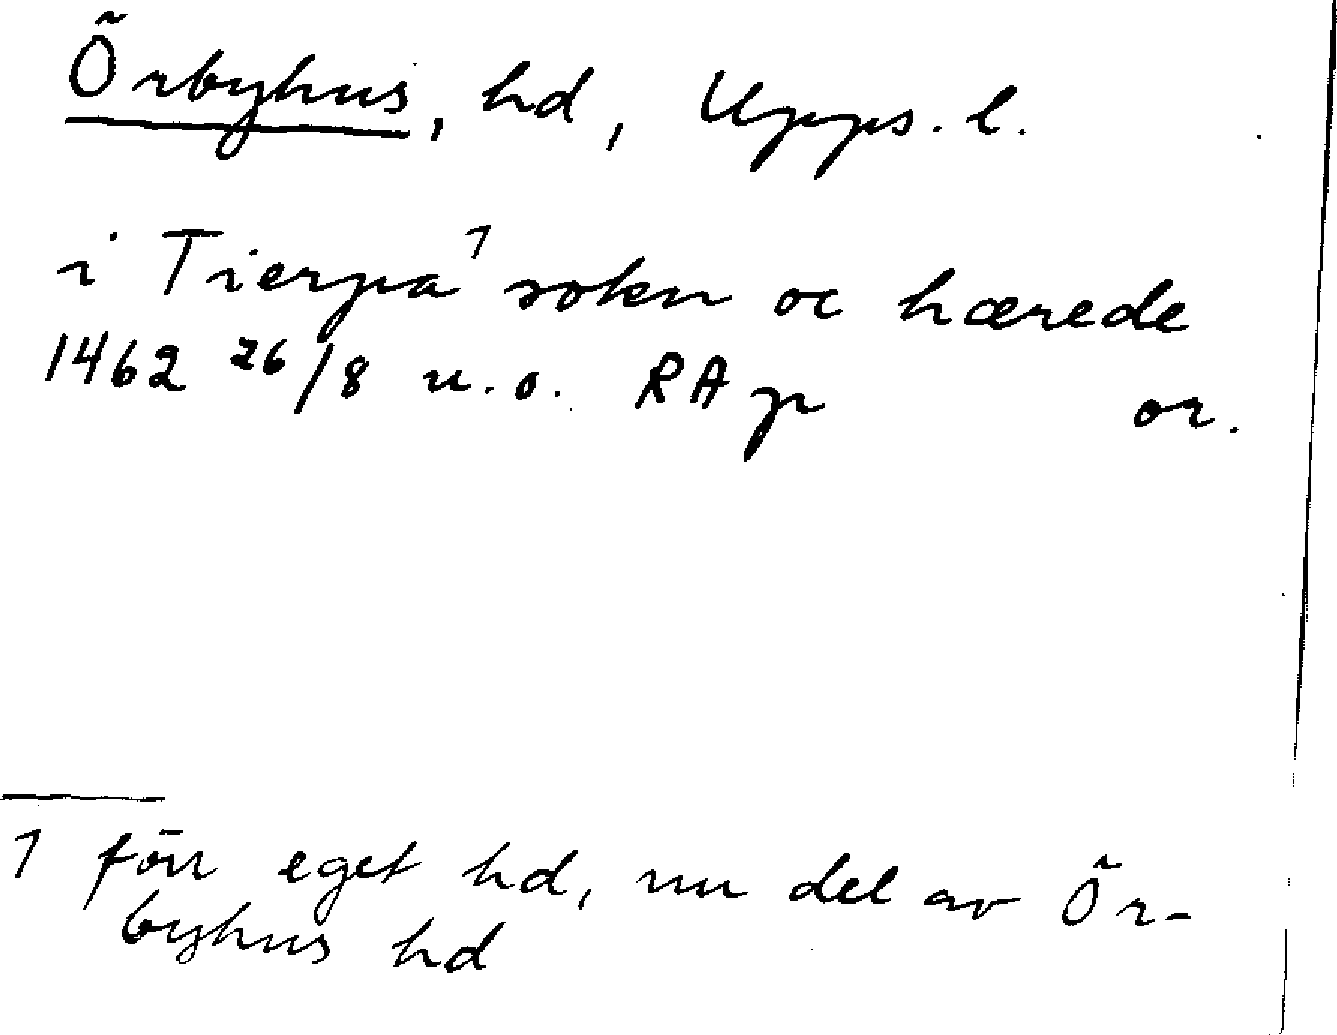 Örbyhus, hd, Upps. l.
i Tierpa¹ sokn oc hærede
1462 26/8 u.o. RAp or.
1 förr eget hd, nu del av Ör-
byhus hd